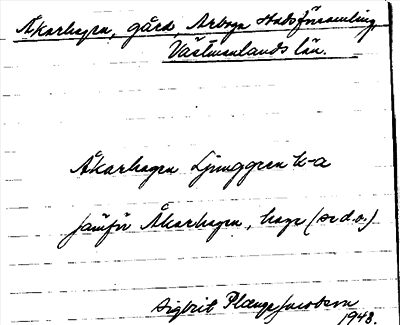 Åkerhagen, gård, Arboga Stadsförsamling,
Västmanlands län.
Åkerhagen Ljunggren U-a
jämför Åkerhagen, hage (se d.o.)
Sigbrit Plænge Jacobson
1948.